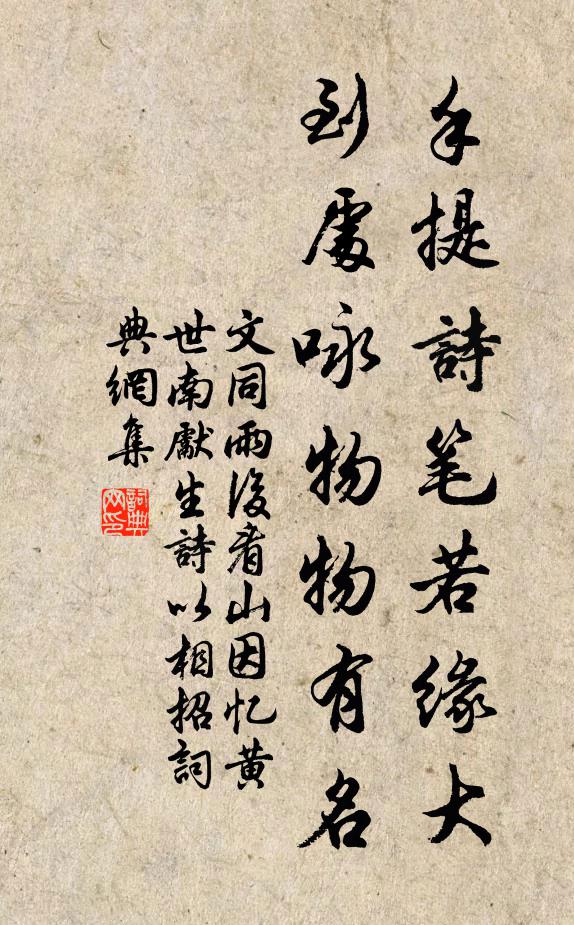 手提詩笔若緣大
到處咏物物有名
文同雨後看山因忆黄
世南獻生詩以相招詞
典網集
詞典
网印